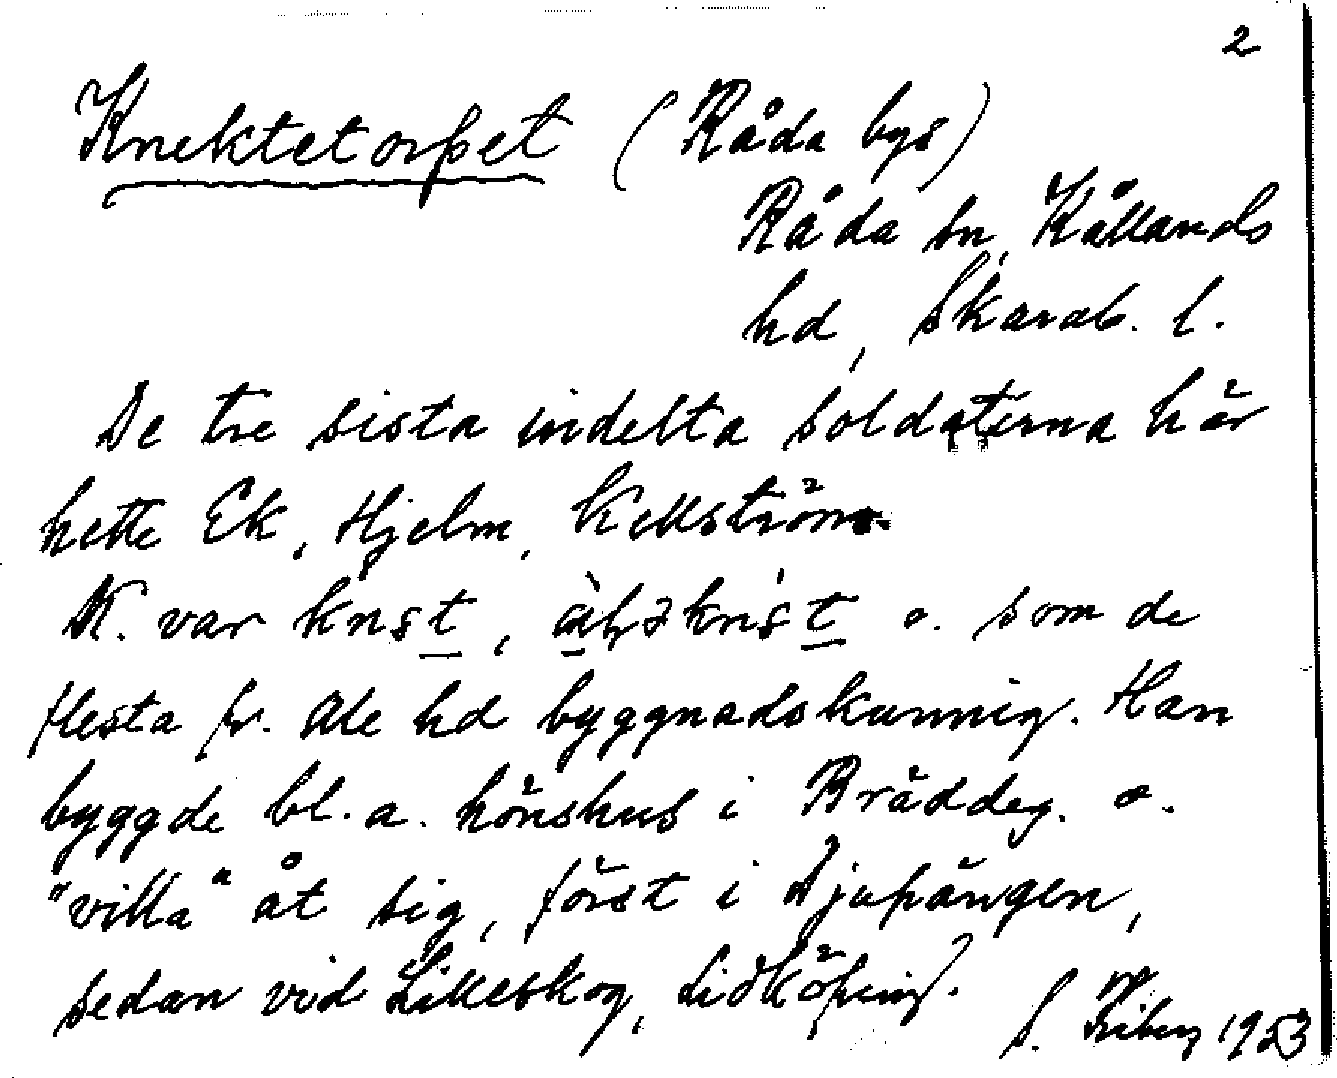 2
Knektetorpet (Råda bys)
Råda sn, Kållands
hd, Skarab. l.
De tre sista indelta soldaterna här
hette Ek, Hjelm, Kellström.
K. var knst, o. som de
flesta fr. Ale hd byggnadskunnig. Han
byggde bl.a. hönshus i Präddeg. o.
"villa" åt sig, först i Djupängen,
sedan vid Lilleskog, Lidköping.
S. 1953